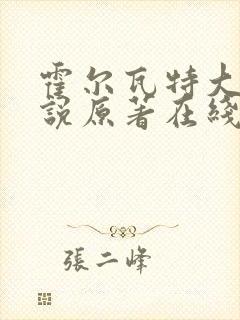 霍尔瓦特大
説原著在綫
張二峰